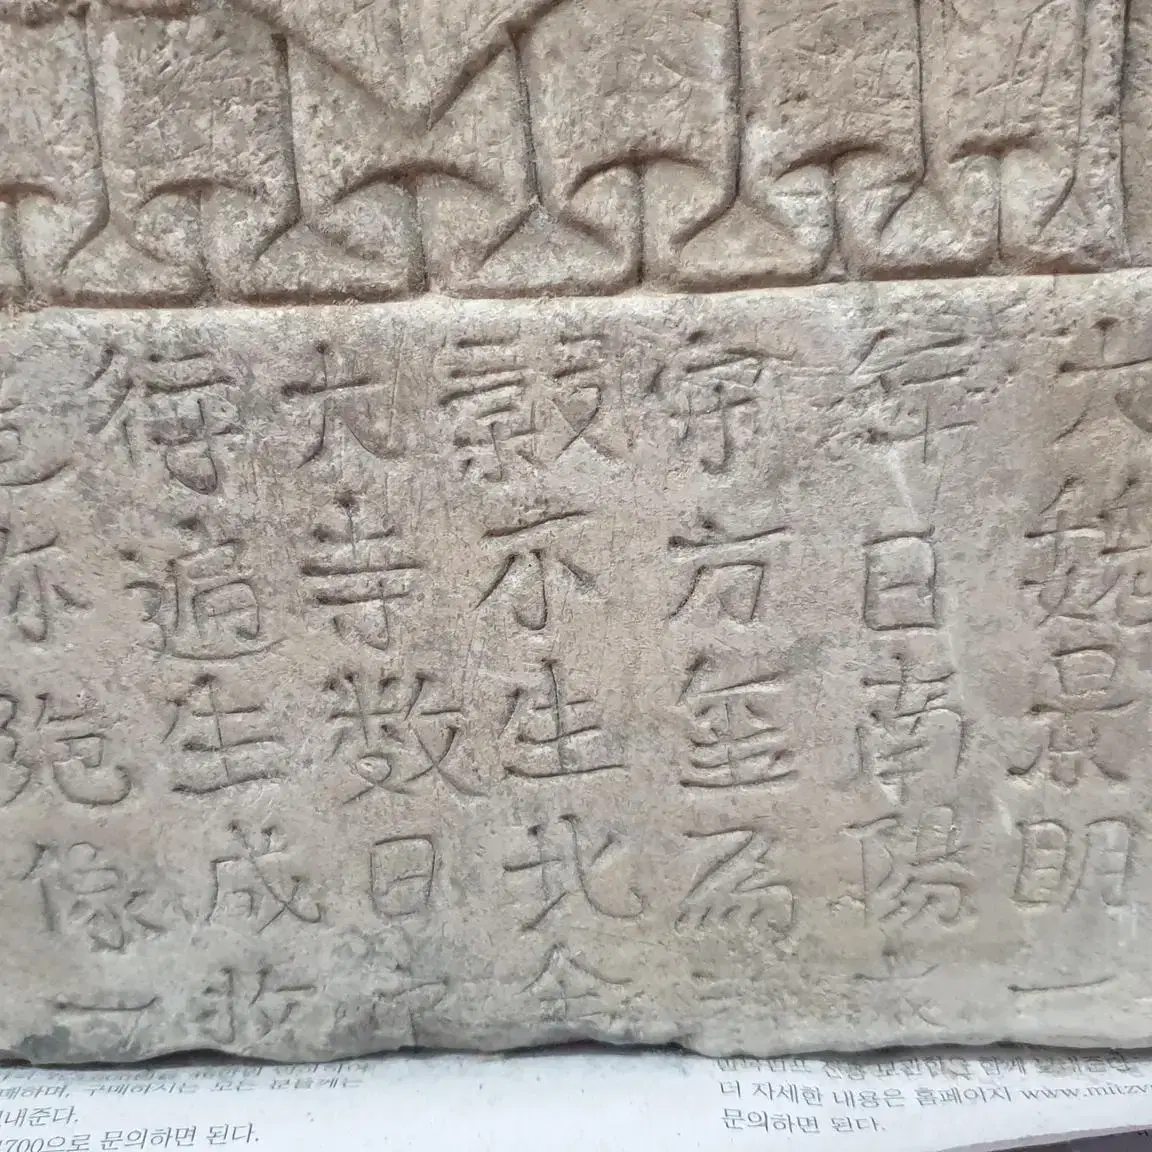 大魏景明一
年日南陽
方玺為
不生北全
大寺数日
得遍生成收
弥陁像一
매하며, 구매하시는 모든 분들께는
내준다.
700으로 문의하면 된다.
더 자세한 내용은 홈페이지 www.mitzv
문의하면 된다.